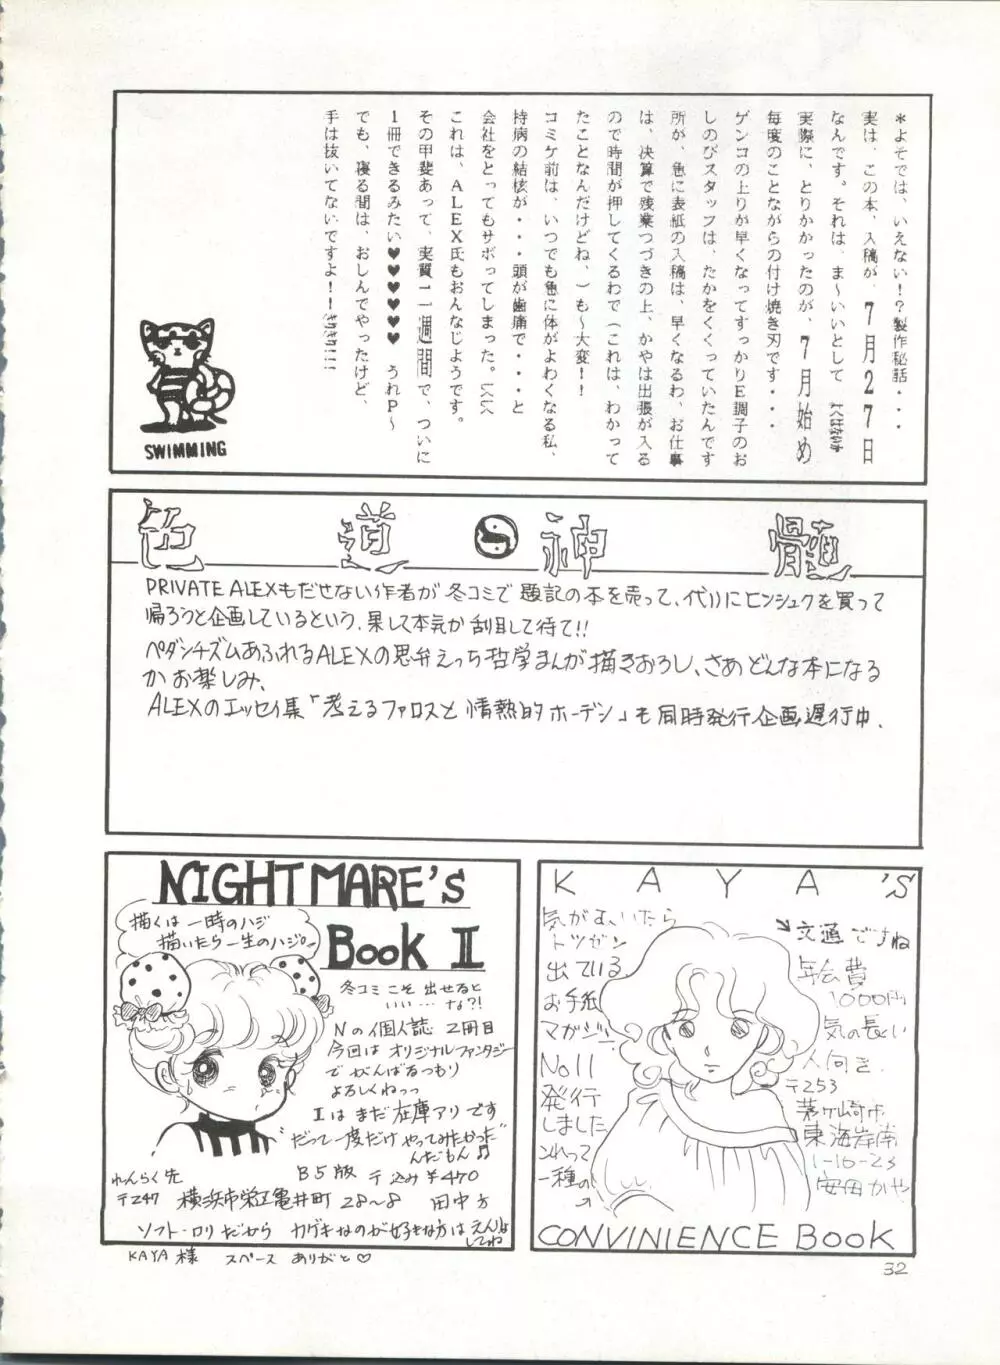 *よそでは、いえない!?製作秘話・・・
実は、この本、入稿が、7月27日
なんです。それは、ま~いいとして
実際に、とりかかったのが、7月始め
毎度のことながらの付け焼き刃です・・・
ゲンコの上りが早くなってすっかりE調子のお
しのびスタッフは、たかをくくっていたんです
所が、急に表紙の入稿は、早くなるわ、お仕事
は、決算で残業つづきの上、かやは出張が入る
ので時間が押してくるわで(これは、わかって
たことなんだけどね、)も~大変!!
コミケ前は、いつでも急に体がよわくなる私、
持病の結核が・・・頭が歯痛で・・・と
会社をとってもサボってしまった。くくく
これは、ALEX氏もおんなじようです。
その甲斐あって、実質一1週間で、ついに
1冊できるみたい♥♥♥♥♥ うれP~
でも、寝る間は、おしんでやったけど、
手は抜いてないですよ!!
SWIMMING
色道☯神髄
PRIVATE ALEXもだせない作者が冬コミで題記の本を売って、代りにヒンシュクを買って
帰ろうと企画しているという、果して本気か刮目して待て!!
ペダンチズムあふれるALEXの思弁えっち哲学まんが描きおろし、さあどんな本になる
かお楽しみ、
ALEXのエッセイ集「考えるファロスと情熱的ホーデン」も同時発行企画遅行中.
NIGHTMARE'S
Book II
描くは一時のハジ
描いたら一生のハジ。
冬コミこそ出せると
いい…な?!
Nの個人誌 2冊目
今回はオリジナルファンタジー
でがんばるつもり
よろしくねっっ
Iはまだ在庫アリです
"だって一度だけやってみたかった"
んだもん♬
B5版 〒込み¥470
れんらく先
〒247 横浜市栄区亀井町28~8 田中方
ソフト・ロリだから カゲキなのが好きな方はえんりょ
してね
KAYA様 スペース ありがと♡
KAYA'S
気がむいたら
トツゼン
出ている
お手紙
マガジン.
No11
発行
しました
これって
一種の
文通ですね
年会費
1000円
気の長い
人向き.
〒253
茅ヶ崎市
東海岸南
1-10-23
安田かや
CONVINIENCE Book
32